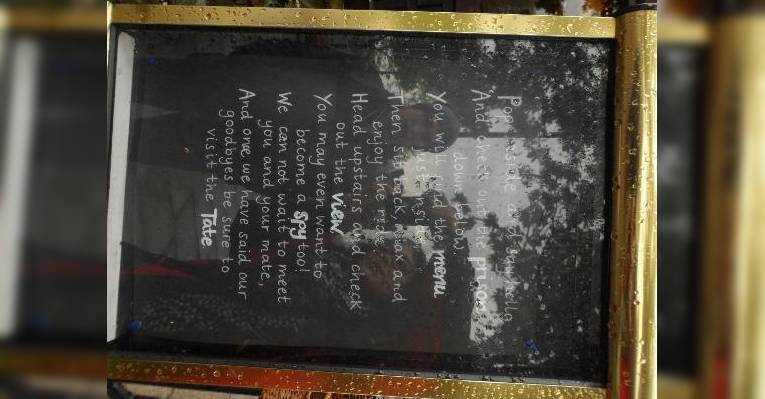 Pop inside and say hello
And check out the prison
down below.
You will find the menu
just inside
Then sit back, relax and
enjoy the ride
Head upstairs and check
out the view
You may even want to
become a spy too!
We can not wait to meet
you and your mate,
And once we have said our
goodbyes be sure to
visit the Tate